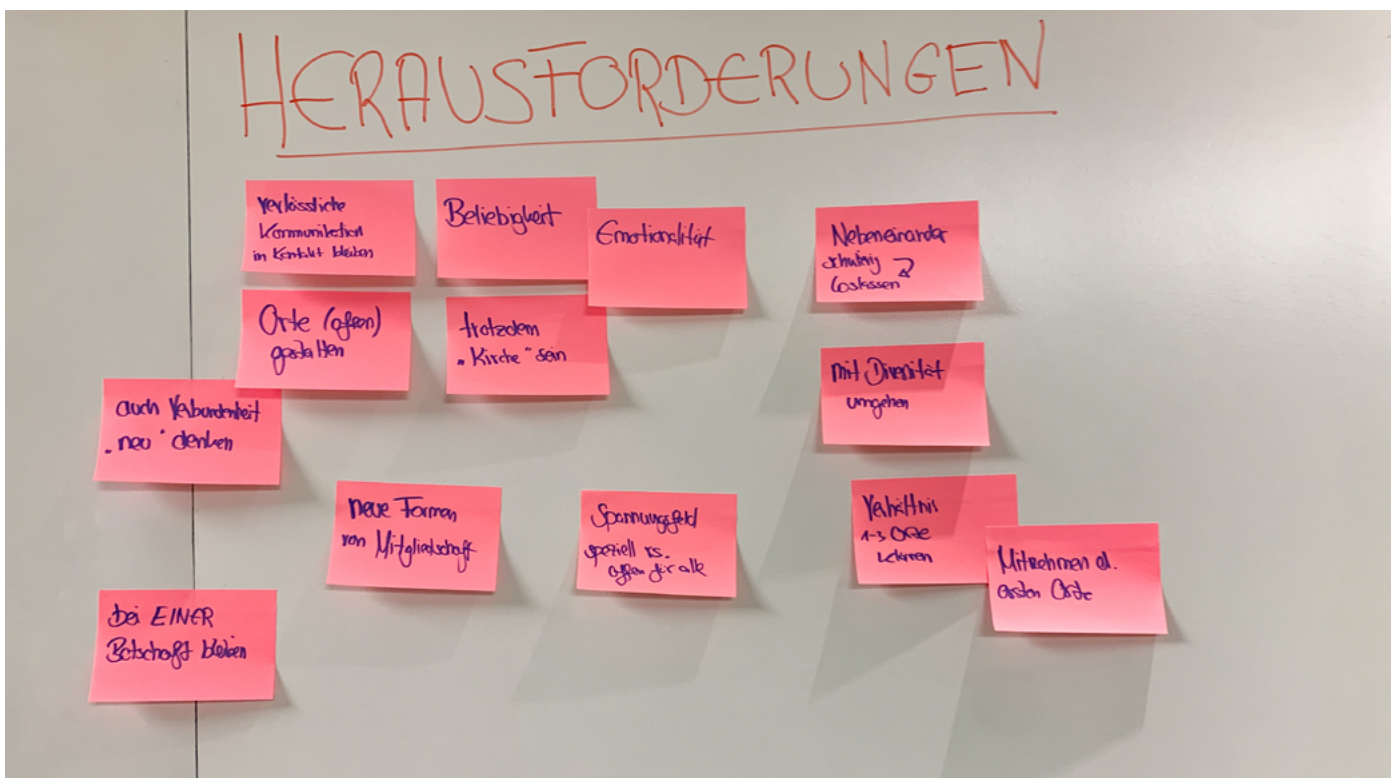 HERAUSFORDERUNGEN
verlässliche
Kommunikation
in Kontakt bleiben
Beliebigkeit
Emotionalität
Nebeneinander
schwierig
Loslassen
Orte (offen)
gestalten
trotzdem
„Kirche“ sein
mit Diversität
umgehen
auch Verbundenheit
„neu“ denken
neue Formen
von Mitgliedschaft
Spannungsfeld
speziell vs.
offen für alle
Verhältnis
1-3 Orte
klären
Mitnehmen d.
ersten Orte
bei EINER
Botschaft bleiben